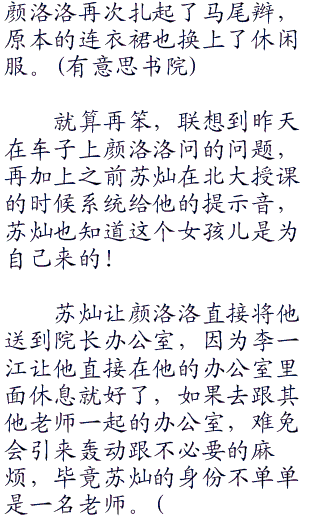 颜洛洛再次扎起了马尾辫，
原本的连衣裙也换上了休闲
服。(有意思书院)
就算再笨，联想到昨天
在车子上颜洛洛问的问题，
再加上之前苏灿在北大授课
的时候系统给他的提示音，
苏灿也知道这个女孩儿是为
自己来的！
苏灿让颜洛洛直接将他
送到院长办公室，因为李一
江让他直接在他的办公室里
面休息就好了，如果去跟其
他老师一起的办公室，难免
会引来轰动跟不必要的麻
烦，毕竟苏灿的身份不单单
是一名老师。(